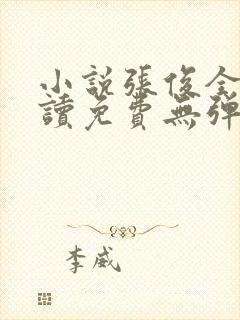 小説張俊全
讀免費無彈
李威